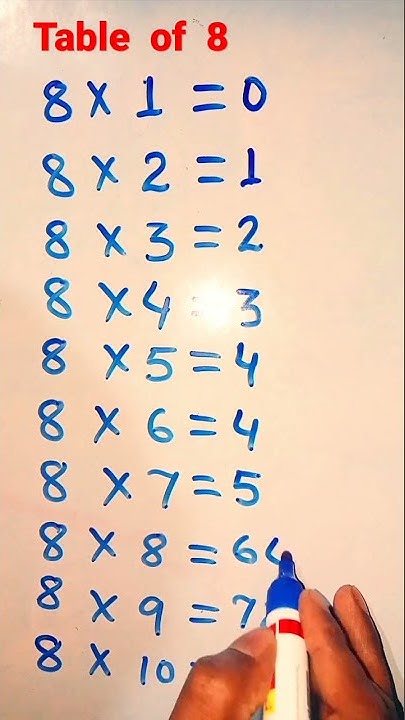 Table of 8
8 × 1 = 0
8 × 2 = 1
8 × 3 = 2
8 × 4 = 3
8 × 5 = 4
8 × 6 = 4
8 × 7 = 5
8 × 8 = 64
8 × 9 = 7
8 × 10